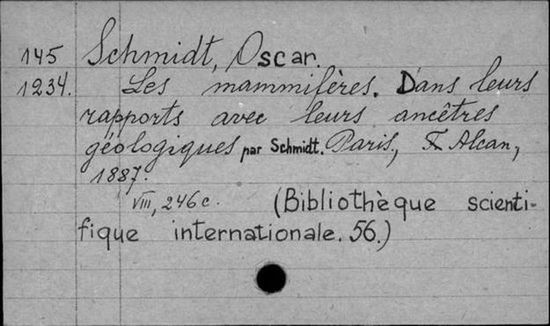 145 Schmidt, Oscar.
1234. Les mammifères. Dans leurs
rapports avec leurs ancêtres
géologiques par Schmidt. Paris, F. Alcan,
1887.
VIII, 246 c. (Bibliothèque scienti-
fique internationale. 56.)